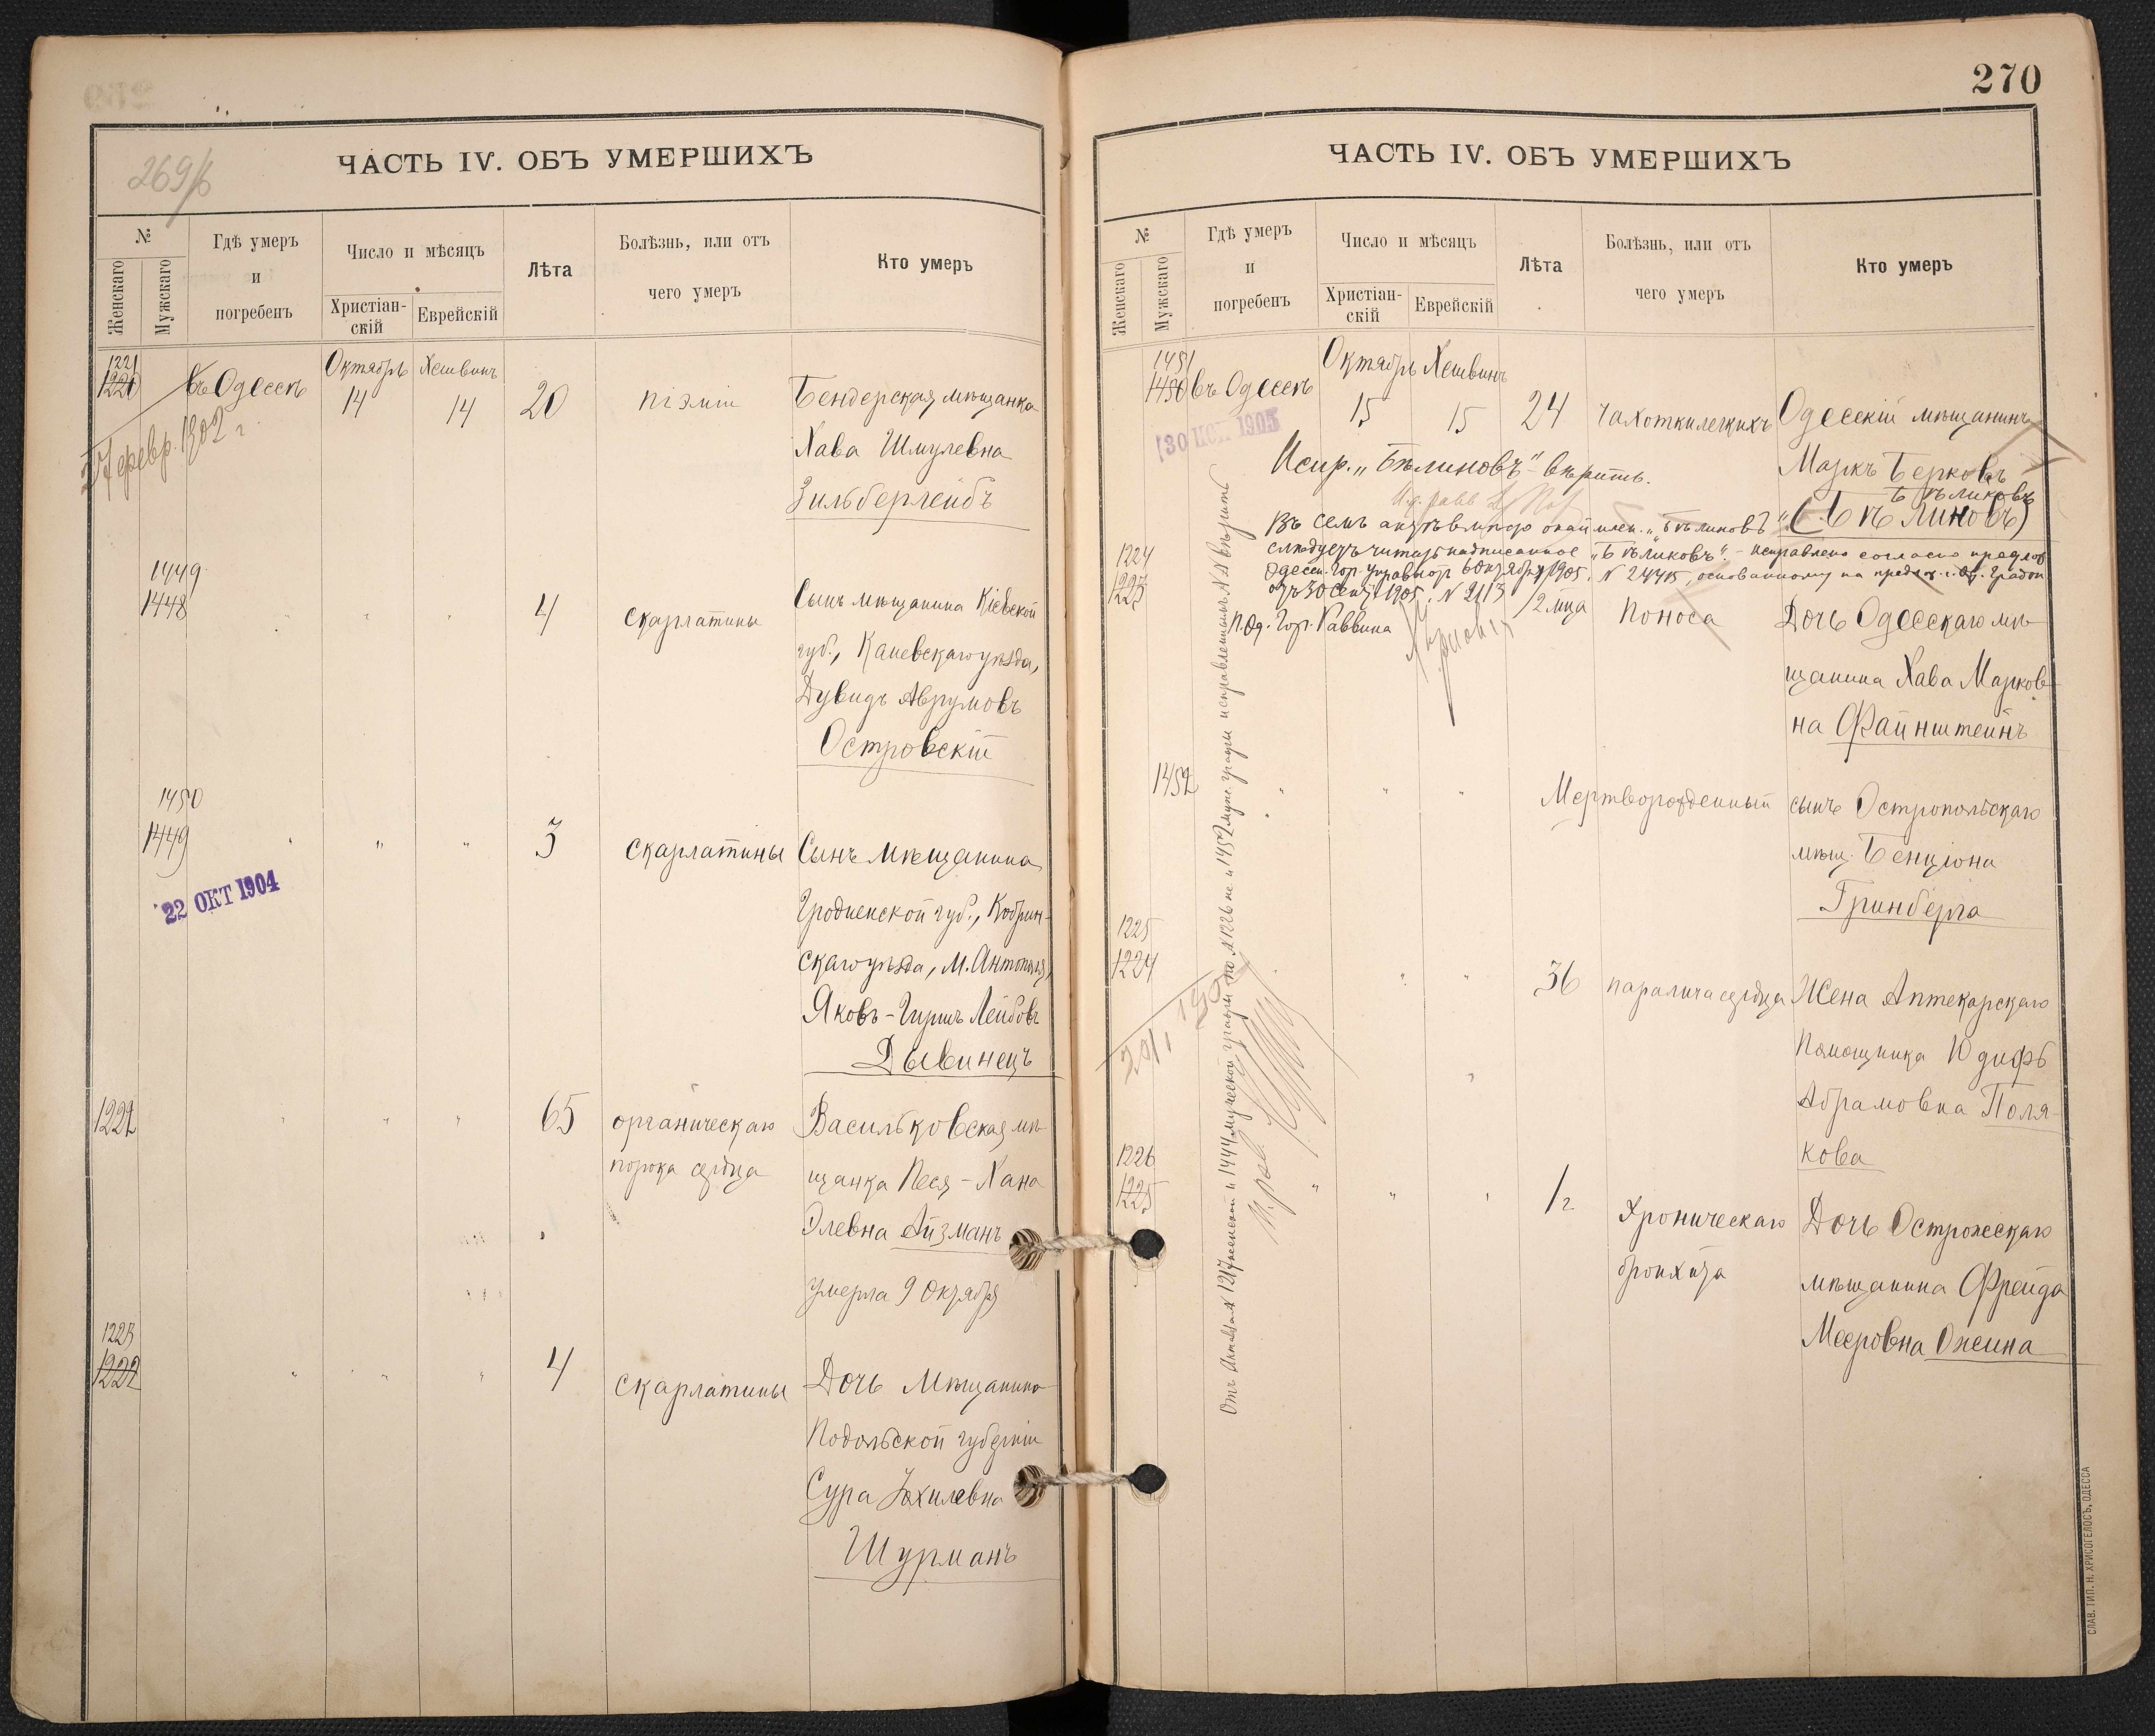 269/б
ЧАСТЬ IV. ОБЪ УМЕРШИХЪ
№
Женскаго
Мужскаго
Гдѣ умеръ
и
погребенъ
Число и мѣсяцъ
Христіан-
скій
Еврейскій
Лѣта
Болѣзнь, или отъ
чего умеръ
Кто умеръ
1221
1220
въ Одессѣ
Октябрь
14
Хешвинъ
14
20
піэміи
Бендерская мѣщанка
Хава Шмулевна
Зильберлейбъ
27 февр. 1902 г.
1449
1448
" " "
4
скарлатины
Сынъ мѣщанина Кіевской
губ., Каневскаго уѣзда,
Дувидъ Аврумовъ
Островскій
1450
1449
" " "
3
скарлатины
Сынъ мѣщанина
Гродненской губ., Кобрин-
скаго уѣзда, М. Антополя,
Яковъ-Гиршъ Лейбовъ
Дывинецъ
22 ОКТ 1904
1222
" " "
65
органическаго
порока сердца
Васильковская мѣ-
щанка Песя-Хана
Элевна Айзманъ
умерла 9 Октября
1223
1222
" " "
4
скарлатины
Дочь Мѣщанина
Подольской губерніи
Сура Хилевна
Шурманъ
270
ЧАСТЬ IV. ОБЪ УМЕРШИХЪ
№
Женскаго
Мужскаго
Гдѣ умеръ
и
погребенъ
Число и мѣсяцъ
Христіан-
скій
Еврейскій
Лѣта
Болѣзнь, или отъ
чего умеръ
Кто умеръ
1451
1450
въ Одессѣ
Октябрь
15
Хешвинъ
15
24
чахотки легкихъ
Одесскій мѣщанинъ
Маркъ Берковъ
Бѣликовъ
(Бѣлиновъ)
1905
Испр. „Бѣлиновъ" вѣрить.
Въ семъ актѣ вмѣсто „Бѣлиновъ"
слѣдуетъ читать надписанное „Бѣликовъ". - исправлено согласно предлож.
Одесск. Гор. Управы от 6 Октября 1905, № 24415, основанному на предлож. г. Од. Градон.
отъ 30 Сент. 1905, № 2113
И. Од. Гор. Раввина
1224
1223
/2 мца
поноса
Дочь Одесскаго мѣ-
щанина Хава Марков-
на Файнштейнъ
1452
" " "
Мертворожденный
сынъ Остропольскаго
мѣщ. Бенціона
Гринберга
1225
1224
" " "
36
паралича сердца
Жена Аптекарскаго
Помощника Юдифь
Абрамовна Поля-
кова
1226
1225
" " "
1/2
Хроническаго
бронхита
Дочь Острожскаго
мѣщанина Фрейда
Мееровна Окснна
Отъ Актовъ № 1217 женской и 1444 мужской графы по № 1226 же и 1452 муж. графы исправленнымъ № № вѣрить
СЛАВ. ТИП. Н. ХРИСОГЕЛОСЪ, ОДЕССА